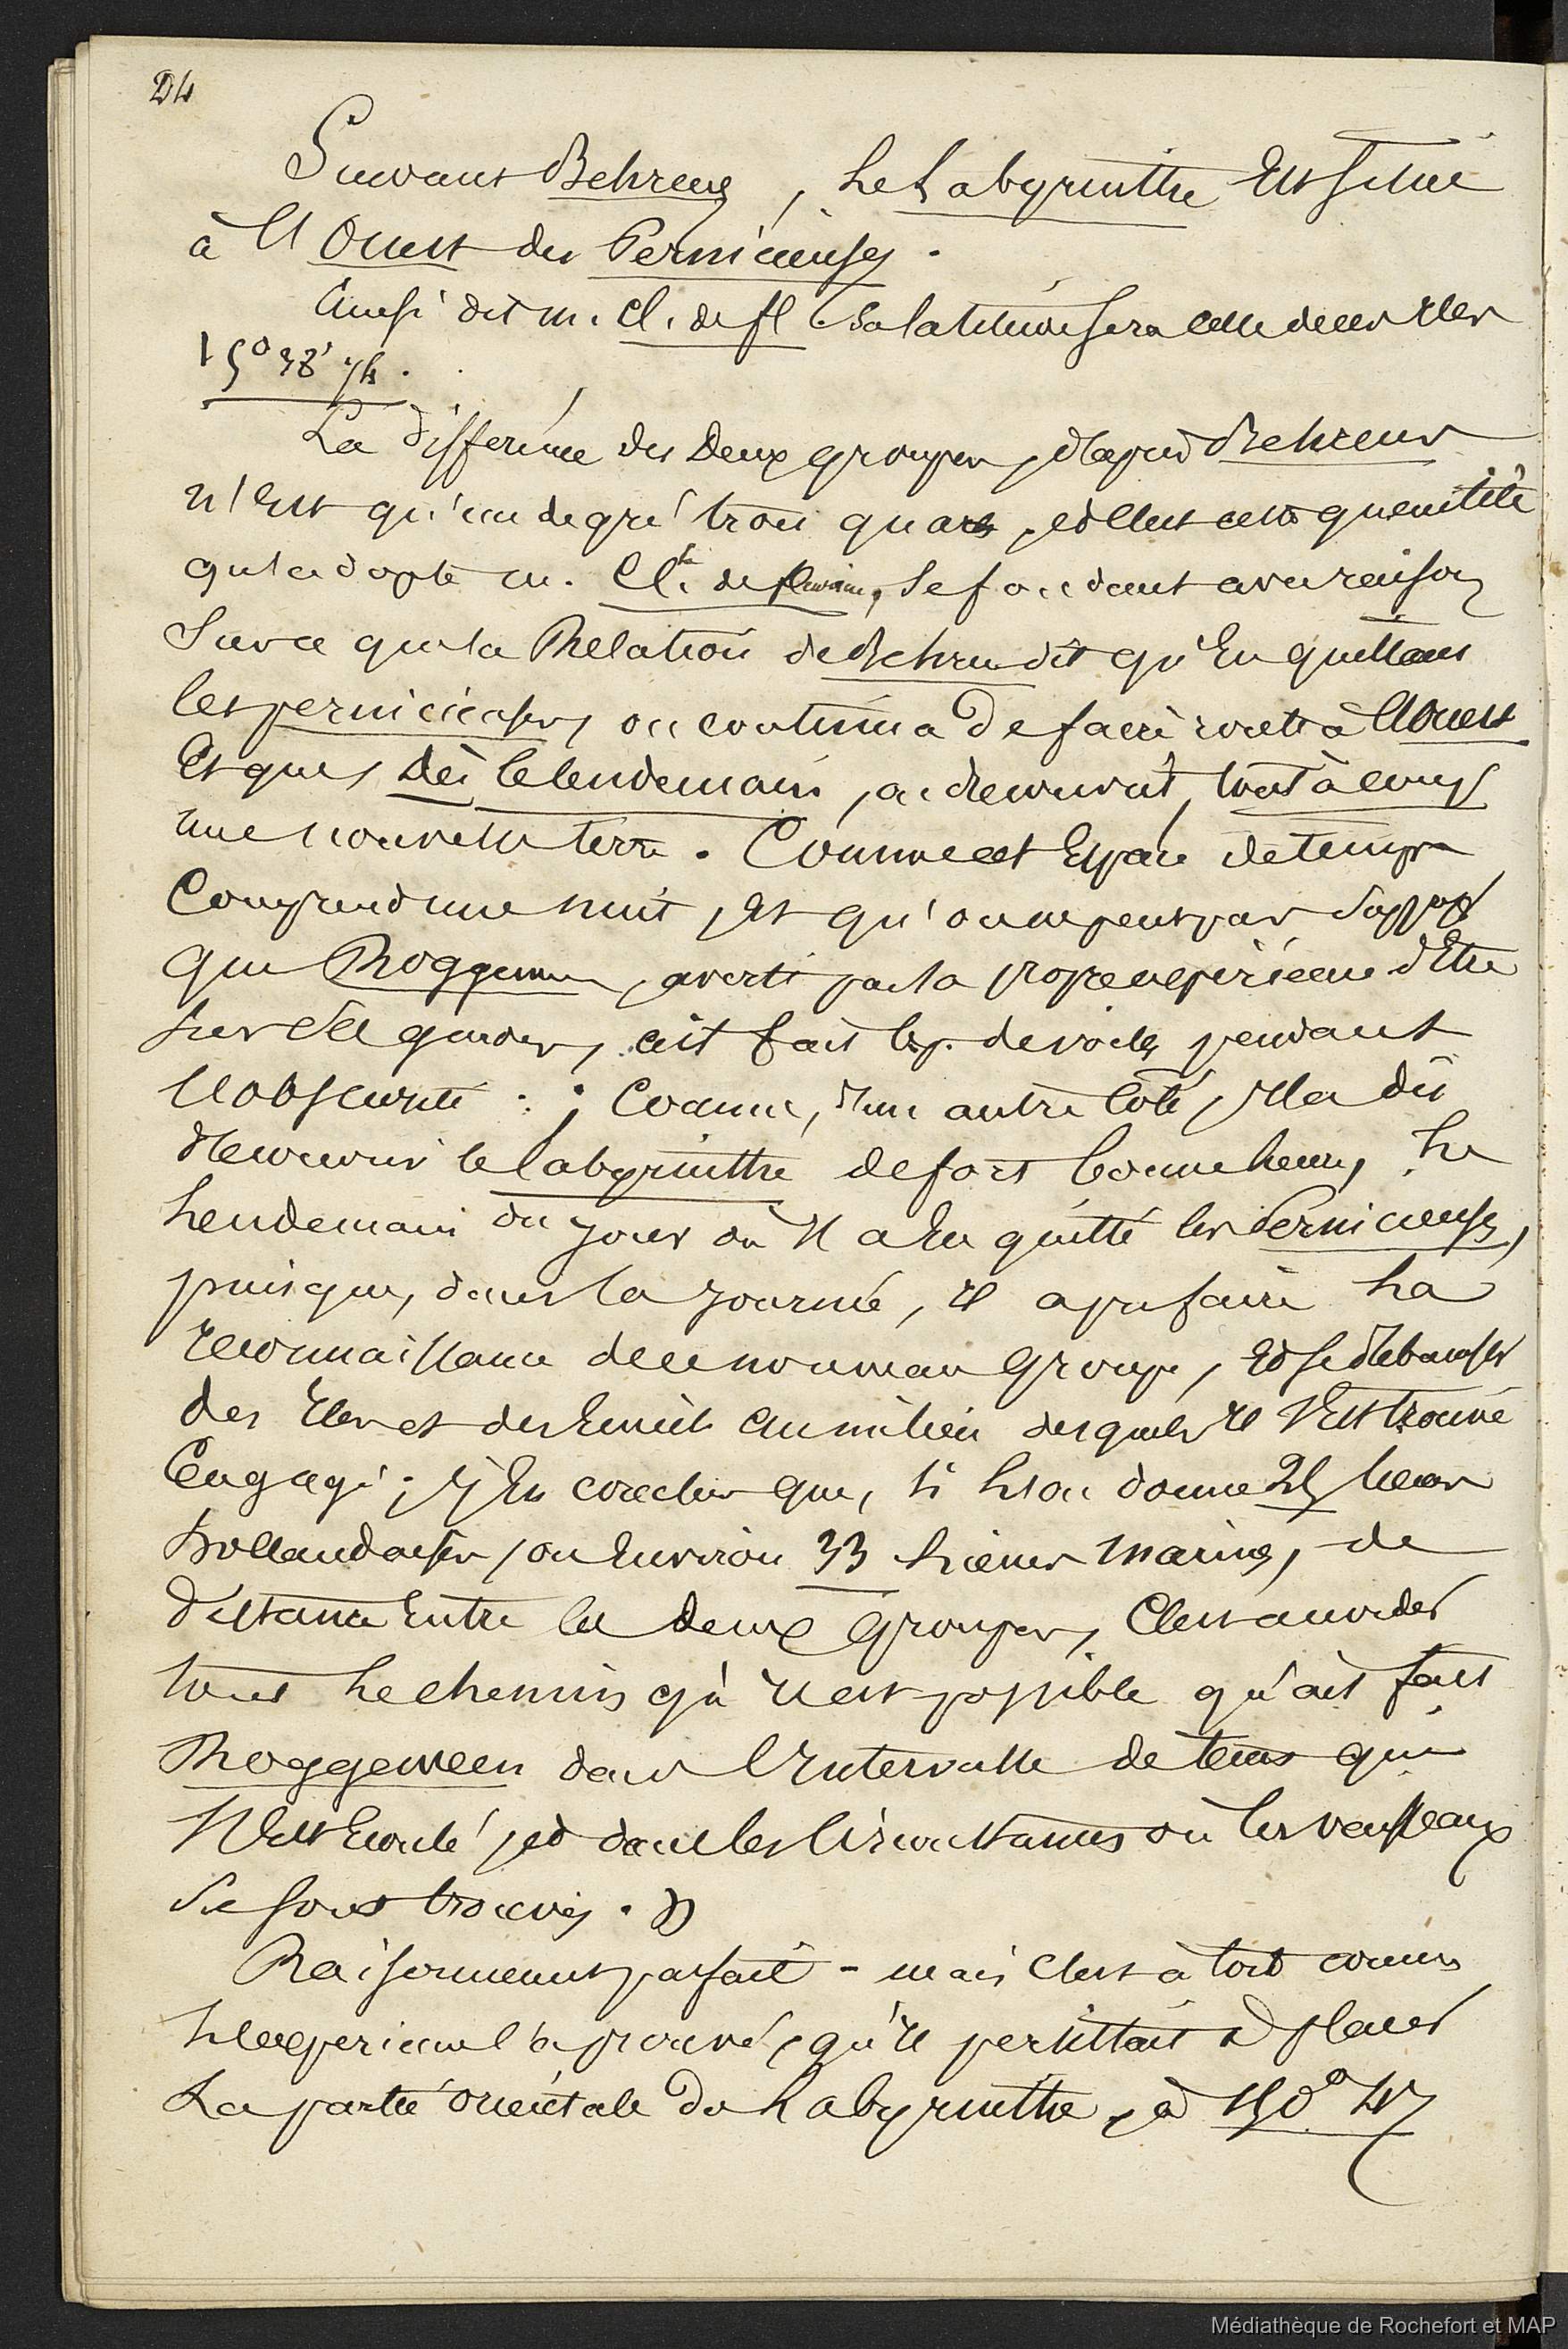 24
Suivant Behrens, Le Labyrinthe Est situé
à l'Ouest des Pernicieuses.
Ainsi dit M. Cl. de fl. Sa latitude sera celle de ces Iles
15°
La différence des Deux groupes, d'après Behrens
n'Est qu'un degré trois quarts, et c'est cette quantité
qu'adopte M. Cl. de fleurieu, Se fondant avec raison
Sur ce que la Relation de Behrens dit qu'En quittant
les pernicieuses, on continua De faire route à l'Ouest
Et que, Dès le lendemain, on découvrit, tout à coup
une nouvelle terre. Comme cet Espace de temps
Comprend une nuit, Et qu'on ne peut pas Supposer
que Roggeween, averti par sa propre expérience d'Etre
sur Ses gardes, ait fait de voiles pendant
l'obscurité : ; Comme, d'un autre Coté, Il a dû
découvrir le labyrinthe de fort bonne heure, Le
Lendemain du jour où Il a Eu quitté les Pernicieuses,
puisque, dans la journée, Il a pu faire La
reconnaissance de ce nouveau Groupe, Et se débarrasser
des Iles et des Ecueils au milieu desquels Il s'Est trouvé
Engagé ; j'En conclus que, si L'on donne 25 lieues
hollandaises, ou Environ 33 Lieues Marines, de
distance Entre les deux Groupes, C'est accorder
tout Le chemin qu'Il est possible qu'ait fait
Roggeween dans l'Intervalle de tems qui
s'Est Ecoulé, et dans les Circonstances où les vaisseaux
Se sont trouvés. »
Raisonnement parfait - mais C'est à tort comme
L'expérience l'a prouvé, qu'Il persistait à placer
La partie Orientale du Labyrinthe, à